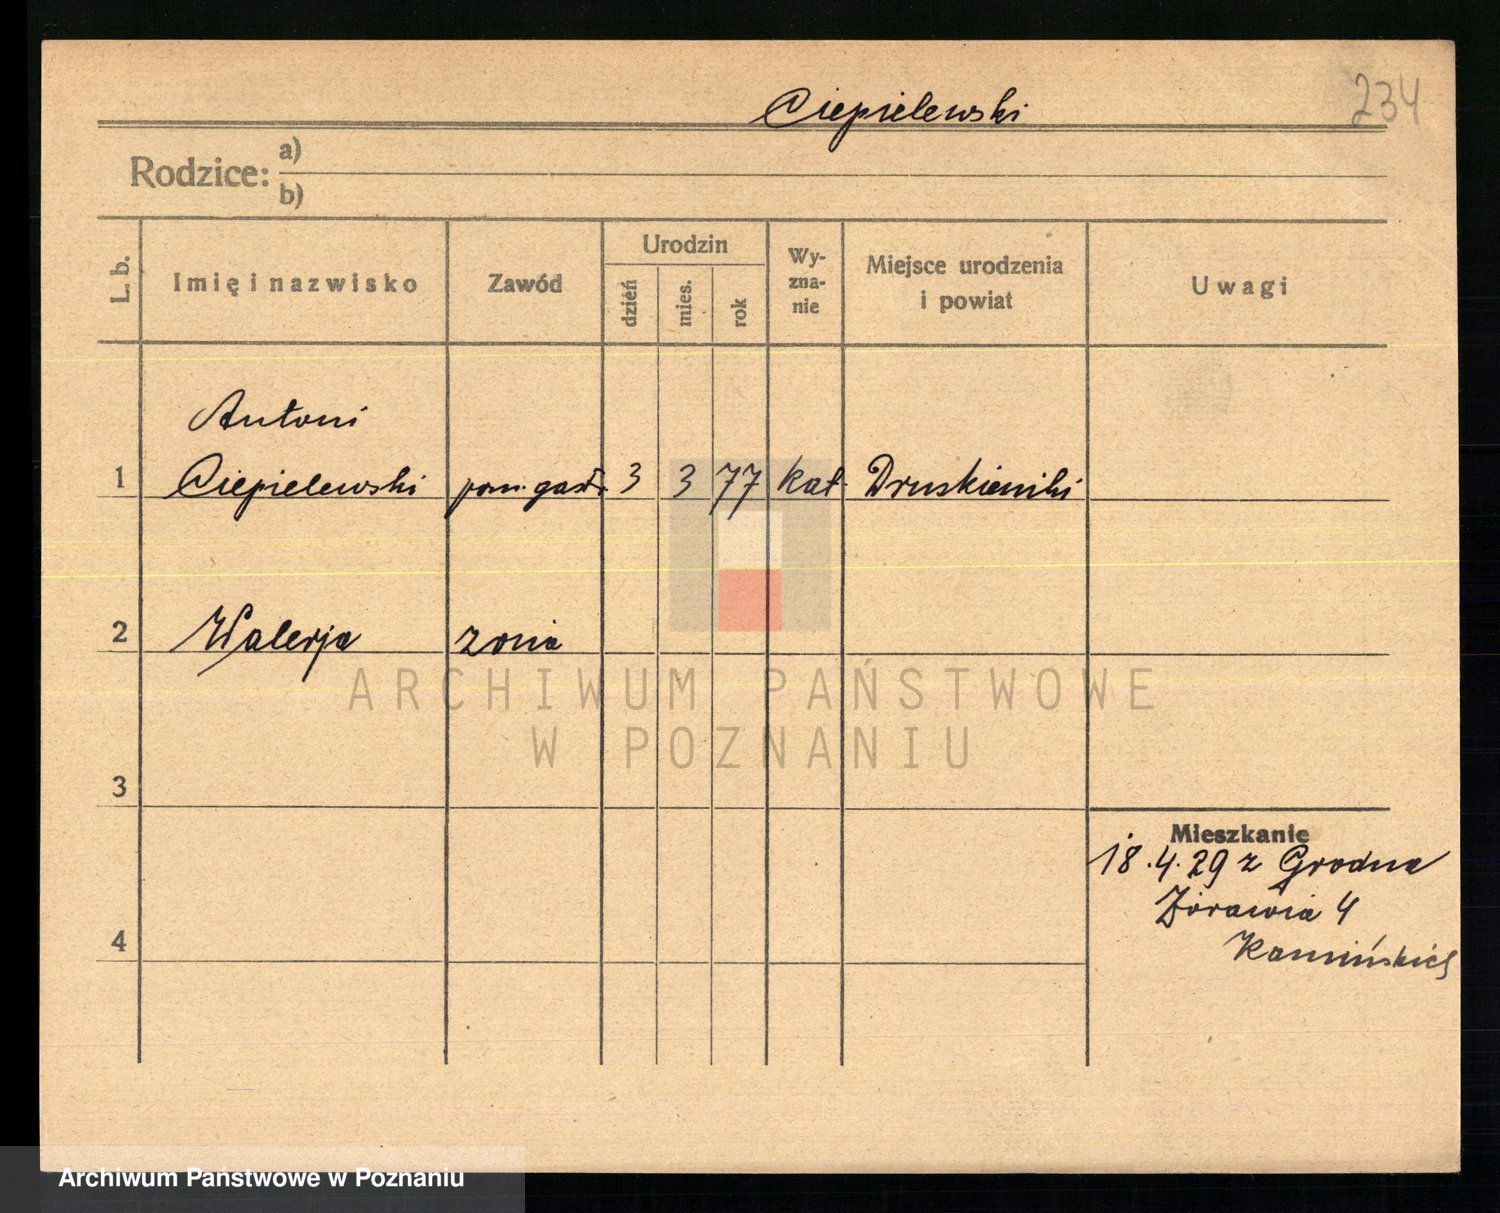 Ciepielewski
234
Rodzice: a)
b)
L. b.
Imię i nazwisko
Zawód
Urodzin
dzień
mies.
rok
Wy-
zna-
nie
Miejsce urodzenia
i powiat
Uwagi
Antoni
1 Ciepielewski pom. gastr. 3 3 77 kat. Druskieniki
2 Walerja żona
ARCHIWUM PAŃSTWOWE
W POZNANIU
3
Mieszkanie
18.4.29 z Grodna
Żórawia 4
Kamińskich
4
Archiwum Państwowe w Poznaniu